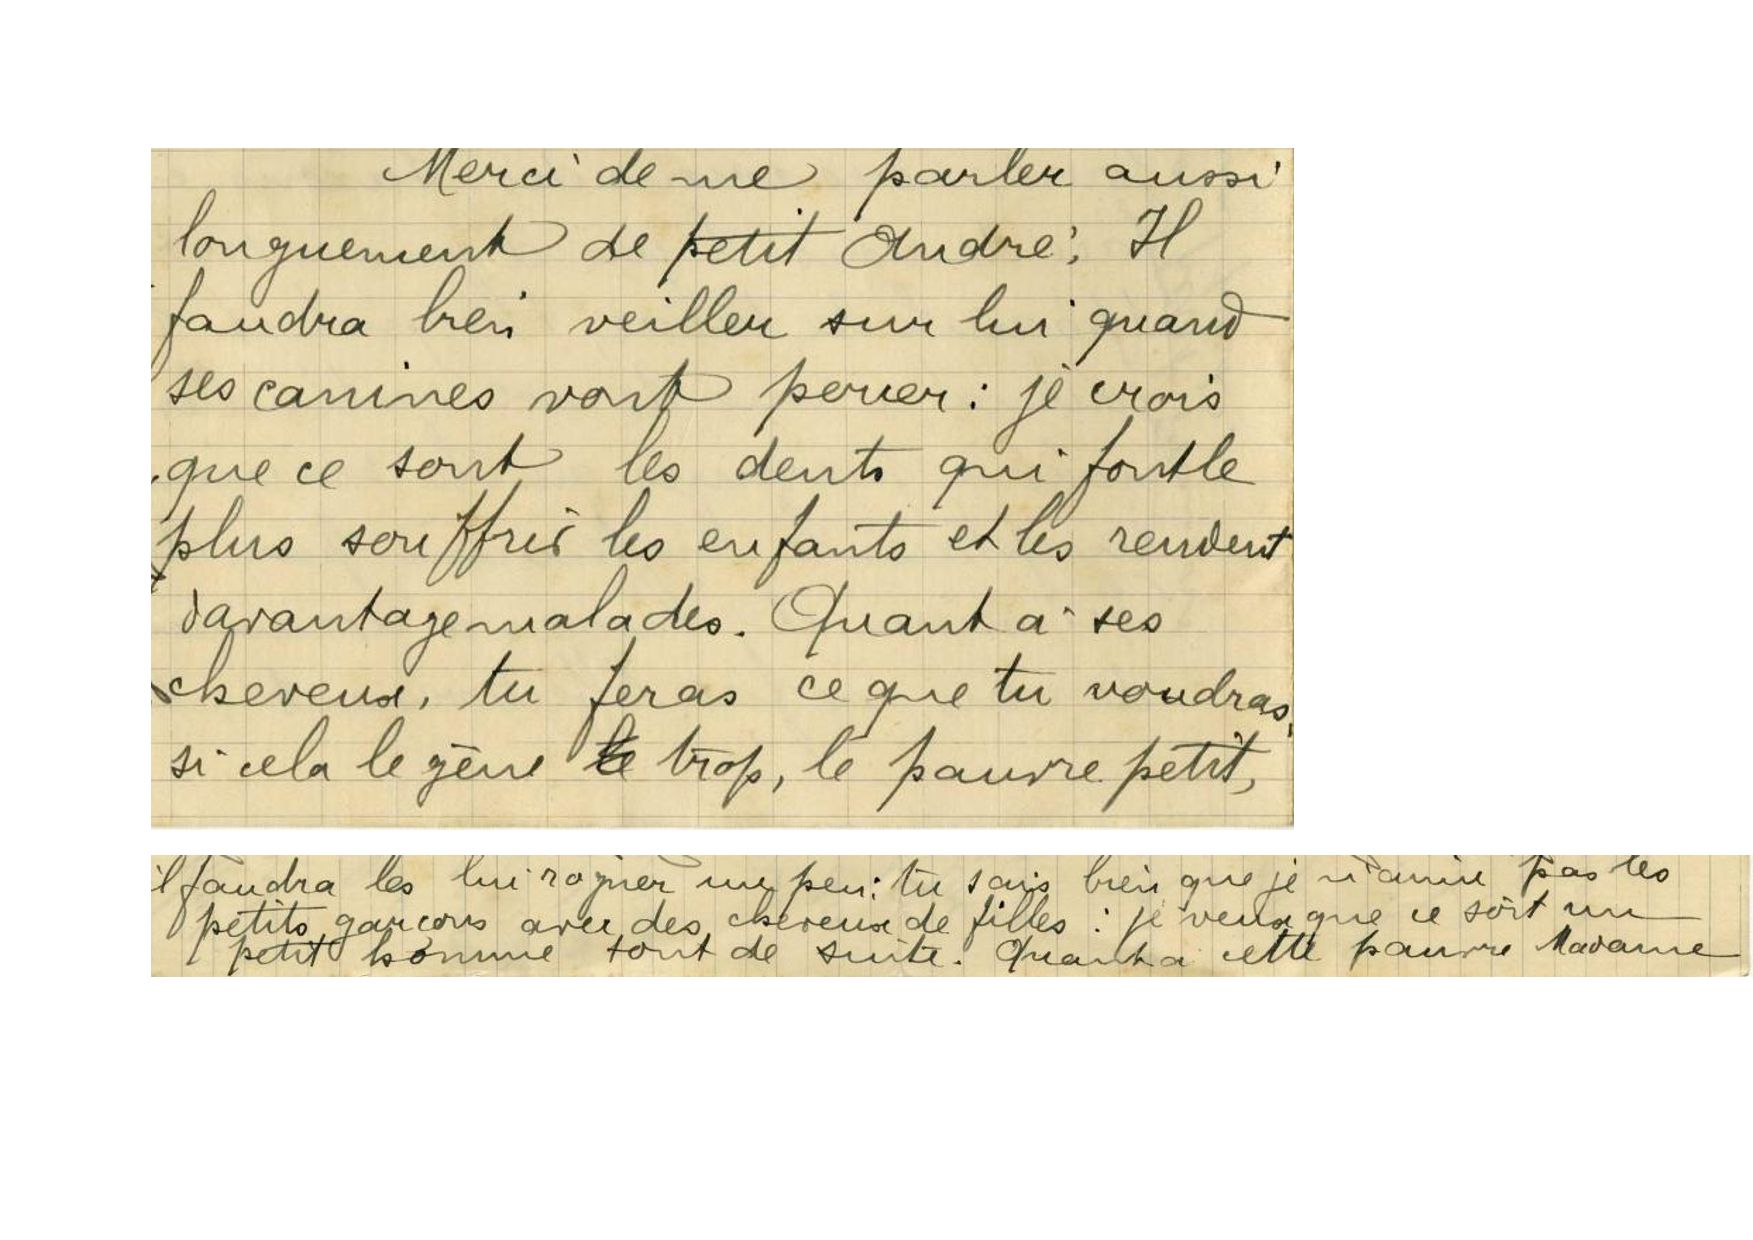 Merci de me parler aussi
longuement de petit André. Il
faudra bien veiller sur lui quand
ses canines vont percer : je crois
que ce sont les dents qui font le
plus souffrir les enfants et les rendent
davantage malades. Quant à ses
cheveux, tu feras ce que tu voudras,
si cela le gêne le trop, le pauvre petit,
il faudra les lui rogner un peu : tu sais bien que je n'aime pas les
petits garçons avec des cheveux de filles : je veux que ce soit un
petit homme tout de suite. Quant à cette pauvre Madame